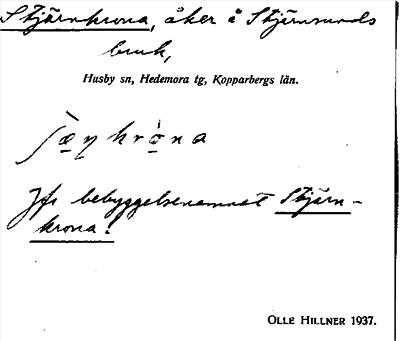 Stjärnkrona, åker å Stjärnsunds
bruk,
Husby sn, Hedemora tg, Kopparbergs län.
Jfr bebyggelsenamnet Stjärn-
krona!
OLLE HILLNER 1937.